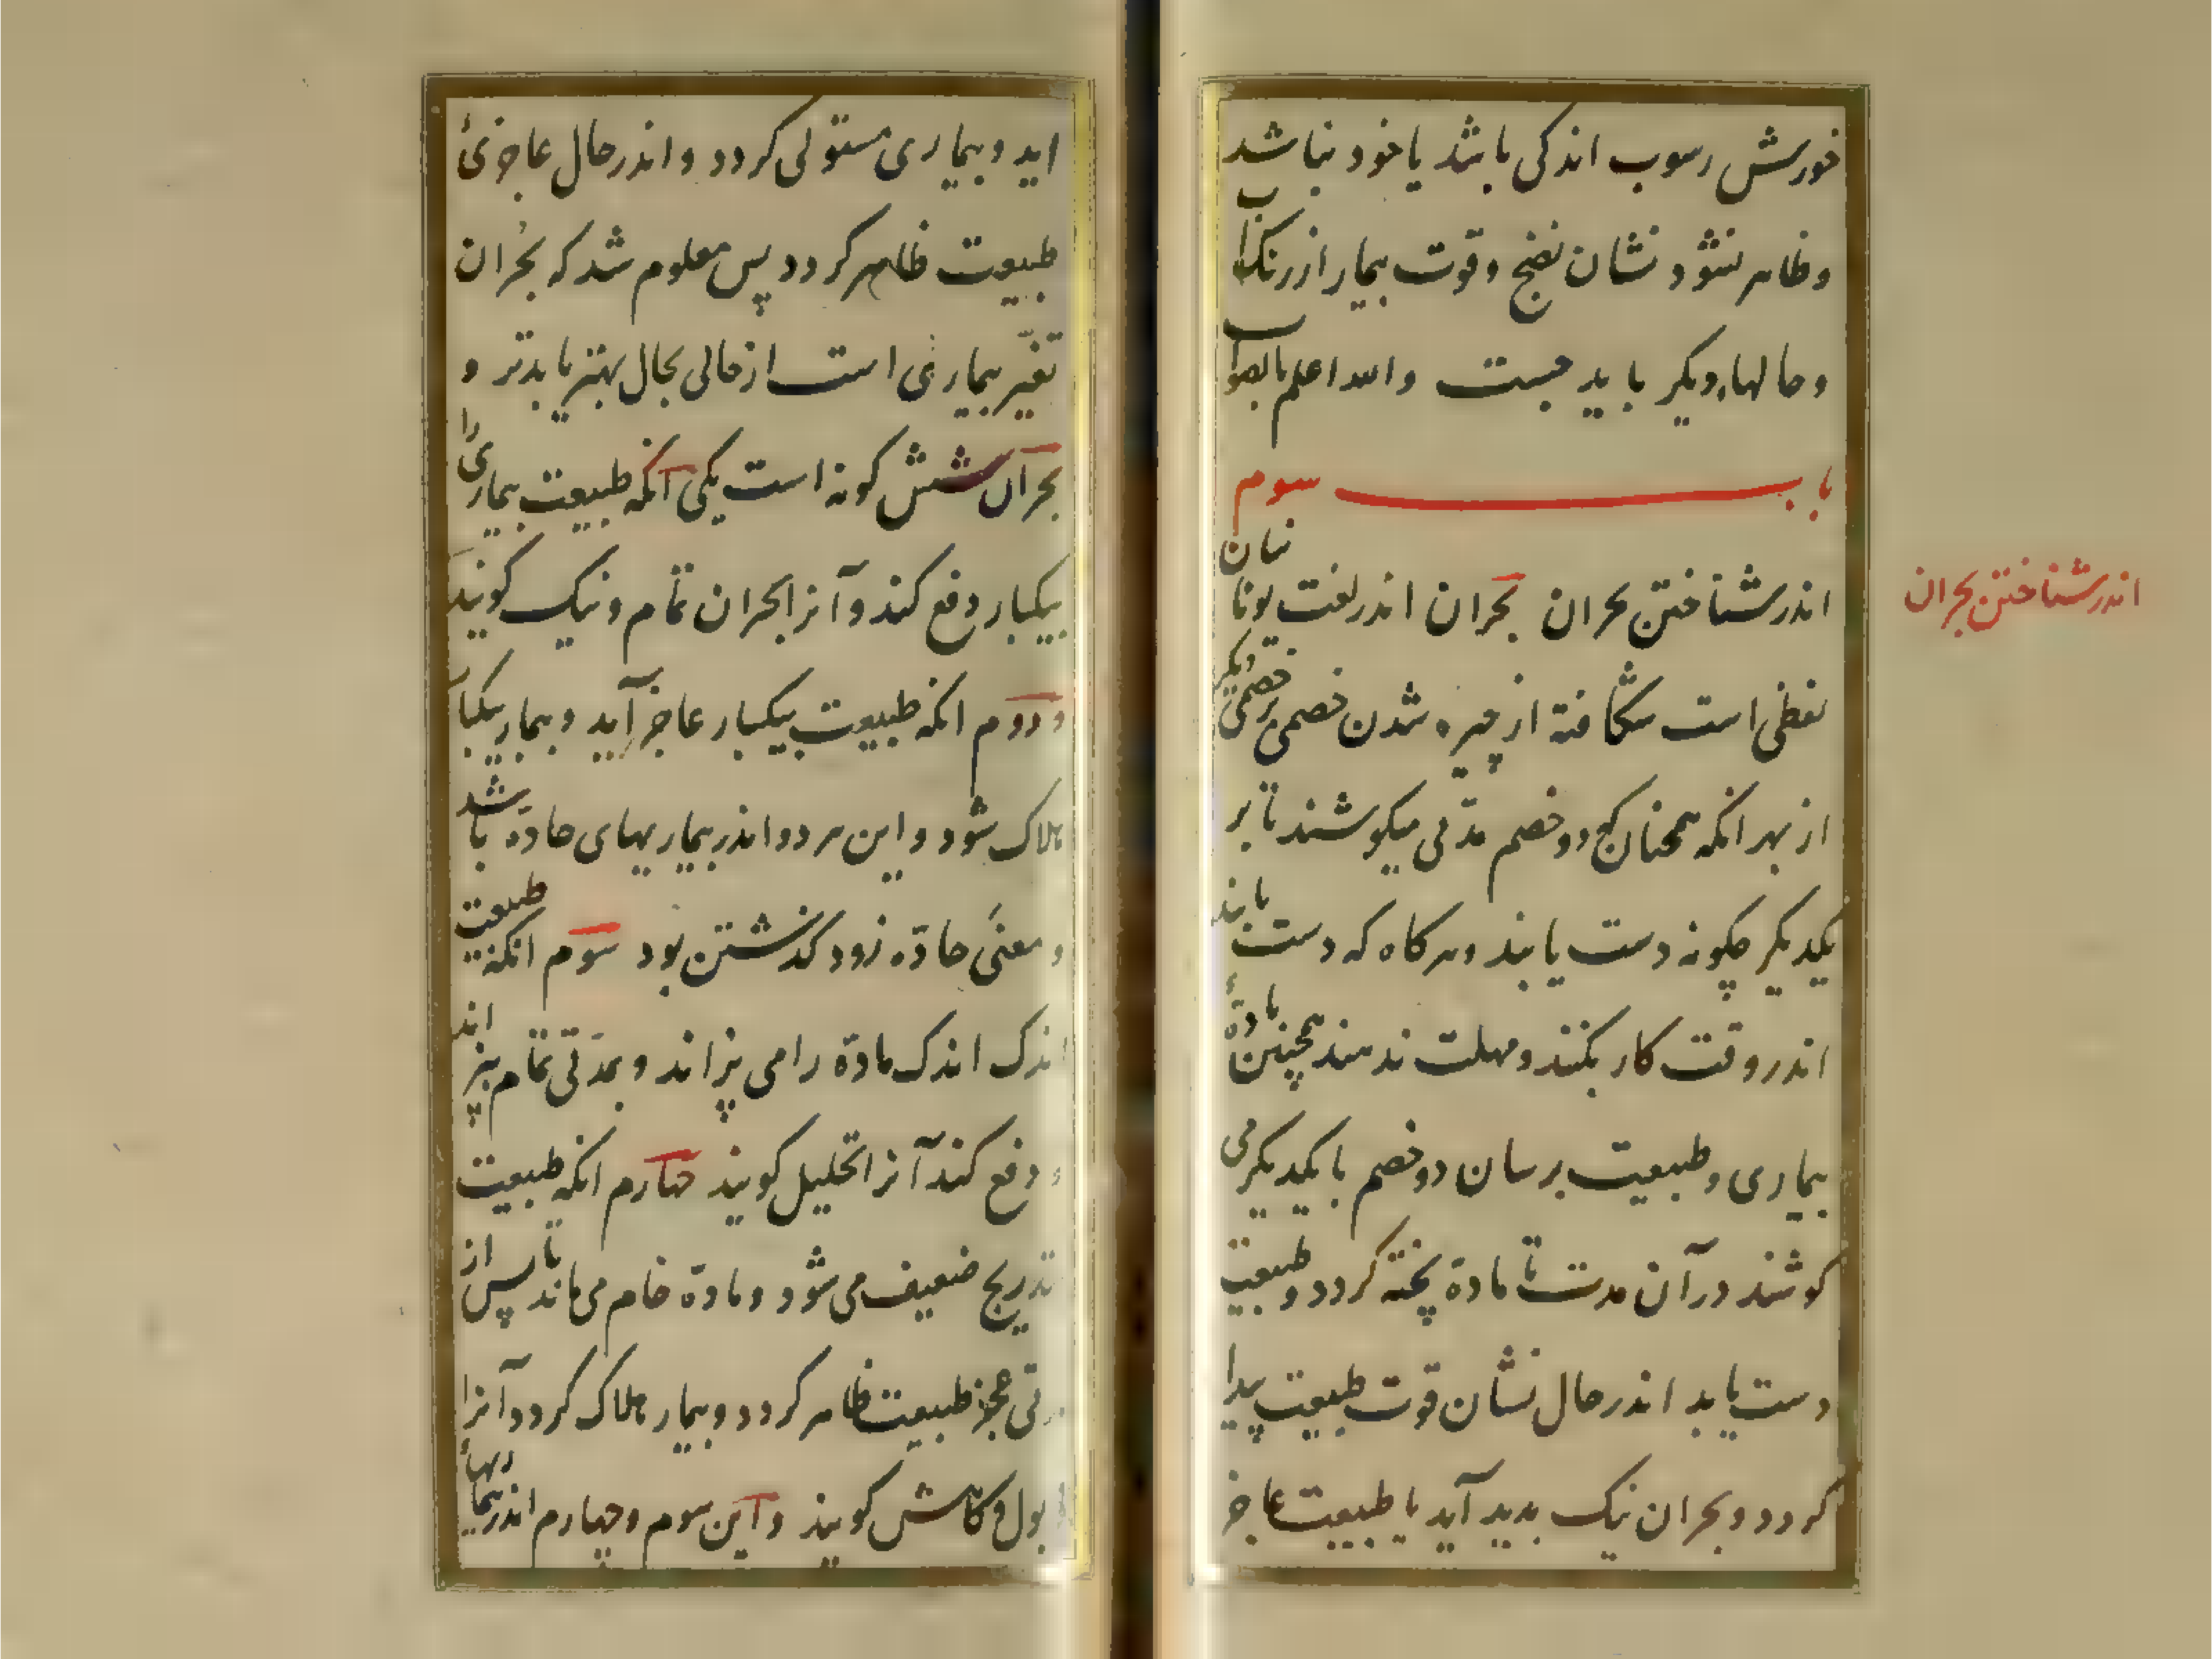 خورش رسوب اندکی باشد یا خود نباشد
و ظاهر نشود نشان نضج و قوت بیمار از رنک آب
و حالهاء دیکر باید جست والله اعلم بالصواب
باب سوم
اندر شناختن بحران بحران اندر لغت یونانیان
اندر شناختن بحران
لفظی است شکافته از چیره شدن خصمی بر خصمی دیکر
از بهر انکه همچنان کی دو خصم مدتی میکوشند تا بر
یکدیکر چکونه دست یابند و هر کاه که دست یابند
اندر وقت کار بکنند و مهلت ندهند همچنین مادهٔ
بیماری و طبیعت برسان دو خصم با یکدیکر می
کوشند در آن مدت تا مادة پخته کردد و طبیعت
دست یابد اندر حال نشان قوت طبیعت پیدا
کردد و بحران نیک بدید آید یا طبیعت عاجز
اید و بیماری مستولی کردد و اندر حال عاجزیٔ
طبیعت ظاهر کردد پس معلوم شد که بحران
تغیّر بیماری است از حالی بحال بهتر یا بدتر و
بحران شش کونه است یکی آنکه طبیعت بیماری را
بیکبار دفع کند و آنرا بحران تمام و نیک کویند
و دوم انکه طبیعت بیکبار عاجز آید و بیمار بیکبار
هلاک شود و این هر دو اندر بیماریهای حادّه باشد
و معنی حادّه زود کذشتن بود سوم انکه طبیعت
اندک اندک مادة را می پزاند و بمدّتی تمام بپزاند
و دفع کند آنرا تحلیل کویند چهارم انکه طبیعت
بتدریج ضعیف می شود و مادة خام می ماند تا پس از
مدتی عجز طبیعت ظاهر کردد و بیمار هلاک کردد آنرا
ذبول و کاهش کویند و این سوم و چهارم اندر بیماریهاء